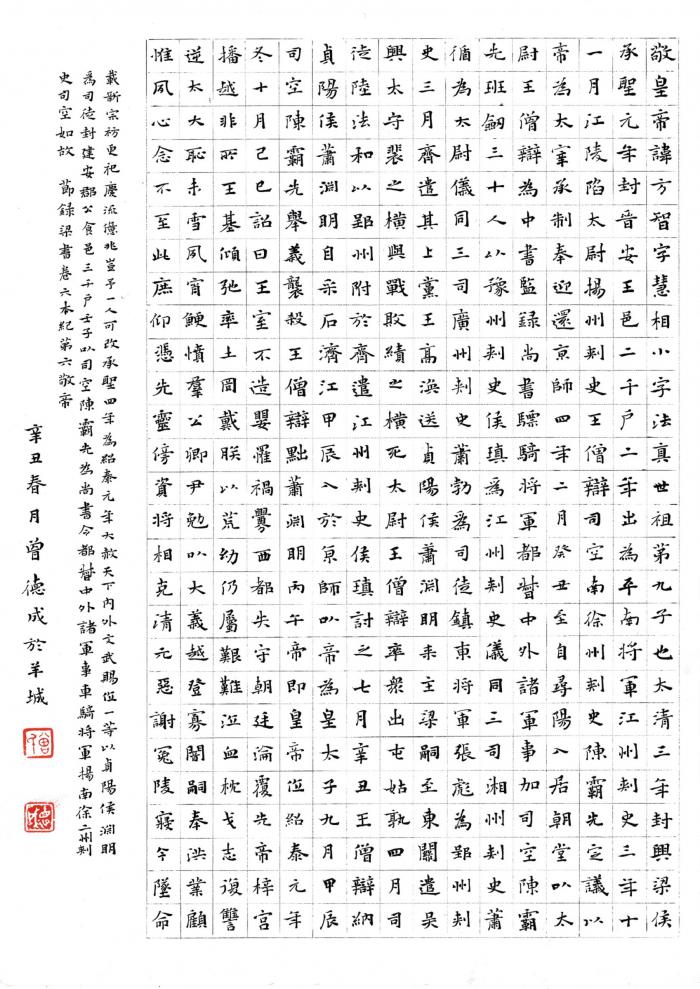 敬皇帝諱方智字慧相小字法真世祖第九子也太清三年封興梁侯
承聖元年封晉安王邑二千戶二年出為平南將軍江州刺史三年十
一月江陵陷太尉揚州刺史王僧辯司空南徐州刺史陳霸先定議以
帝為太宰承制奉迎還京師四年二月癸丑至自尋陽入居朝堂以太
尉王僧辯為中書監録尚書驃騎將軍都督中外諸軍事加司空陳霸
先班劒三十人以豫州刺史侯瑱為江州刺史儀同三司湘州刺史蕭
循為太尉儀同三司廣州刺史蕭勃為司徒鎮東將軍張彪為郢州刺
史三月齊遣其上黨王高渙送貞陽侯蕭淵明来主梁嗣至東關遣吳
興太守裴之橫與戰敗績之橫死太尉王僧辯率衆出屯姑孰四月司
徒陸法和以郢州附於齊遣江州刺史侯瑱討之七月辛丑王僧辯納
貞陽侯蕭渊明自采石濟江甲辰入於京師以帝為皇太子九月甲辰
司空陳霸先舉義襲殺王僧辯黜蕭渊明丙午帝即皇帝位紹泰元年
冬十月己巳詔曰王室不造嬰罹禍釁西都失守朝廷淪覆先帝梓宮
播越非所王基傾弛率土罔戴朕以荒幼仍屬艱難泣血枕戈志復讐
逆大大恥未雪夙宵鯁憤羣公卿尹勉以大義越登寡闇嗣奉洪業顧
惟夙心念不至此庶仰憑先靈傍資將相克清元惡謝冤陵寢今墜命
載新宗祊更祀慶流億兆豈予一人可改承聖四年為紹泰元年大赦天下内外文武賜位一等以貞陽侯渊明
為司徒封建安郡公食邑三千戶壬子以司空陳霸先為尚書令都督中外諸軍事車騎將軍揚南徐二州刺
史司空如故 節録梁書卷六本紀第六敬帝
辛丑春月曾德成於羊城